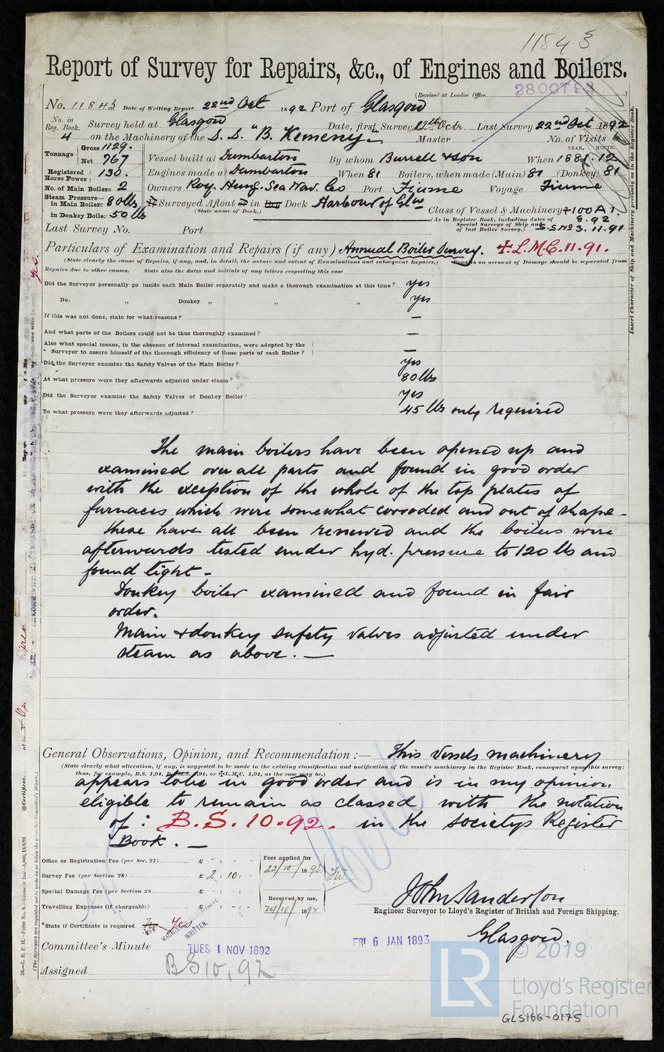 11843
Report of Survey for Repairs, &c., of Engines and Boilers.
(Received at London Office
28 OCT 92
No. 11843 Date of Writing Report 22nd Oct 1892 Port of Glasgow
No. in Reg. Book. Survey held at Glasgow Date, first Survey Last Survey 22nd Oct 1892
4 on the Machinery of the S.S. "B. Kemeny" Master No. of Visits 6
Tonnage Gross 1129. Net 767
Vessel built at Dumbarton By whom Burrell & Son When 1881.12
YEAR. MONTH.
Registered Horse Power 130. Engines made at Dumbarton When 81 Boilers, when made (Main) 81 (Donkey) 81
No. of Main Boilers 2 Owners Roy. Hung. Sea Nav. Co Port Fiume Voyage Fiume
Steam Pressure in Main Boiler 80 lbs Surveyed Afloat or in Dry Dock Harbour of Glw Class of Vessel & Machinery +100A1
(State name of Dock.)
(As in Register Book, including dates of Special Surveys of Ship and of last Boiler Survey.)
8.92
SS No3.11.91
in Donkey Boiler 50 lb
Last Survey No. Port
Particulars of Examination and Repairs (if any) Annual Boiler Survey. +L.M.C. 11.91.
(State clearly the cause of Repairs, if any, and, in detail, the nature and extent of Examinations and subsequent Repairs.) Repairs on account of Damage should be separated from
Repairs due to other causes. State also the dates and initials of any letters respecting this case
Did the Surveyor personally go inside each Main Boiler separately and make a thorough examination at this time? yes
Do. " Donkey " " " yes
If this was not done, state for what reasons? —
And what parts of the Boilers could not be thus thoroughly examined? —
Also what special means, in the absence of internal examination, were adopted by the
Surveyor to assure himself of the thorough efficiency of those parts of each Boiler? —
Did the Surveyor examine the Safety Valves of the Main Boiler? yes
At what pressure were they afterwards adjusted under steam? 80 lbs
Did the Surveyor examine the Safety Valves of Donkey Boiler yes
To what pressure were they afterwards adjusted? 45 lbs only required
The main boilers have been opened up and
examined over all parts and found in good order
with the exception of the whole of the top plates of
furnaces which were somewhat corroded and out of shape -
these have all been renewed and the boilers were
afterwards tested under hyd. pressure to 120 lbs and
found tight -
Donkey boiler examined and found in fair
order.
Main & donkey safety valves adjusted under
steam as above. —
General Observations, Opinion, and Recommendation :— This vessels machinery
(State clearly what alteration, if any, is suggested to be made in the existing classification and notification of the vessel's machinery in the Register Book, consequent upon this survey:
thus, for example, B.S. 1,91, B.&M.S. 1,91, or +L.M.C. 1,91, as the case may be.)
appears to be in good order and is in my opinion
eligible to remain as classed with the notation
of : B.S. 10.92. in the Societys Register
Book. —
Office or Registration Fee (per Sec. 27) £
Survey Fee (per Section 28) £ 2 . 10 .
Special Damage Fee (per Section 28 £
Travelling Expenses (if chargeable) £
Fees applied for
22/10/1892
Received by me,
24/10/1892
*State if Certificate is required Yes
WRITTEN.
John Sanderson
Engineer Surveyor to Lloyd's Register of British and Foreign Shipping.
Glasgow.
Committee's Minute TUES 1 NOV 1892
FRI 6 JAN 1893
Assigned BS10,92
© 2019
LR
Lloyd's Register
Foundation
GLS166-0175